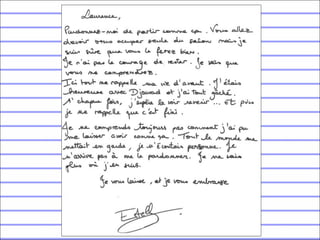 Laurence,
Pardonnez-moi de partir comme ça. Vous allez
devoir vous occuper seule du salon mais je
suis sûre que vous le ferez bien.
Je n'ai pas le courage de rester. Je sais que
vous me comprendrez.
Ici tout me rappelle ma vie d'avant. J'étais
heureuse avec Djaoued et j'ai tout gâché.
A chaque fois, j'espère le voir revenir... Et puis
je me rappelle que c'est fini.
Je ne comprends toujours pas comment j'ai pu
me laisser avoir comme ça. Tout le monde me
mettait en garde, je n'écoutais personne. Je
n'arrive pas à me le pardonner. Je ne sais
plus où j'en suis.
Je vous laisse, et je vous embrasse